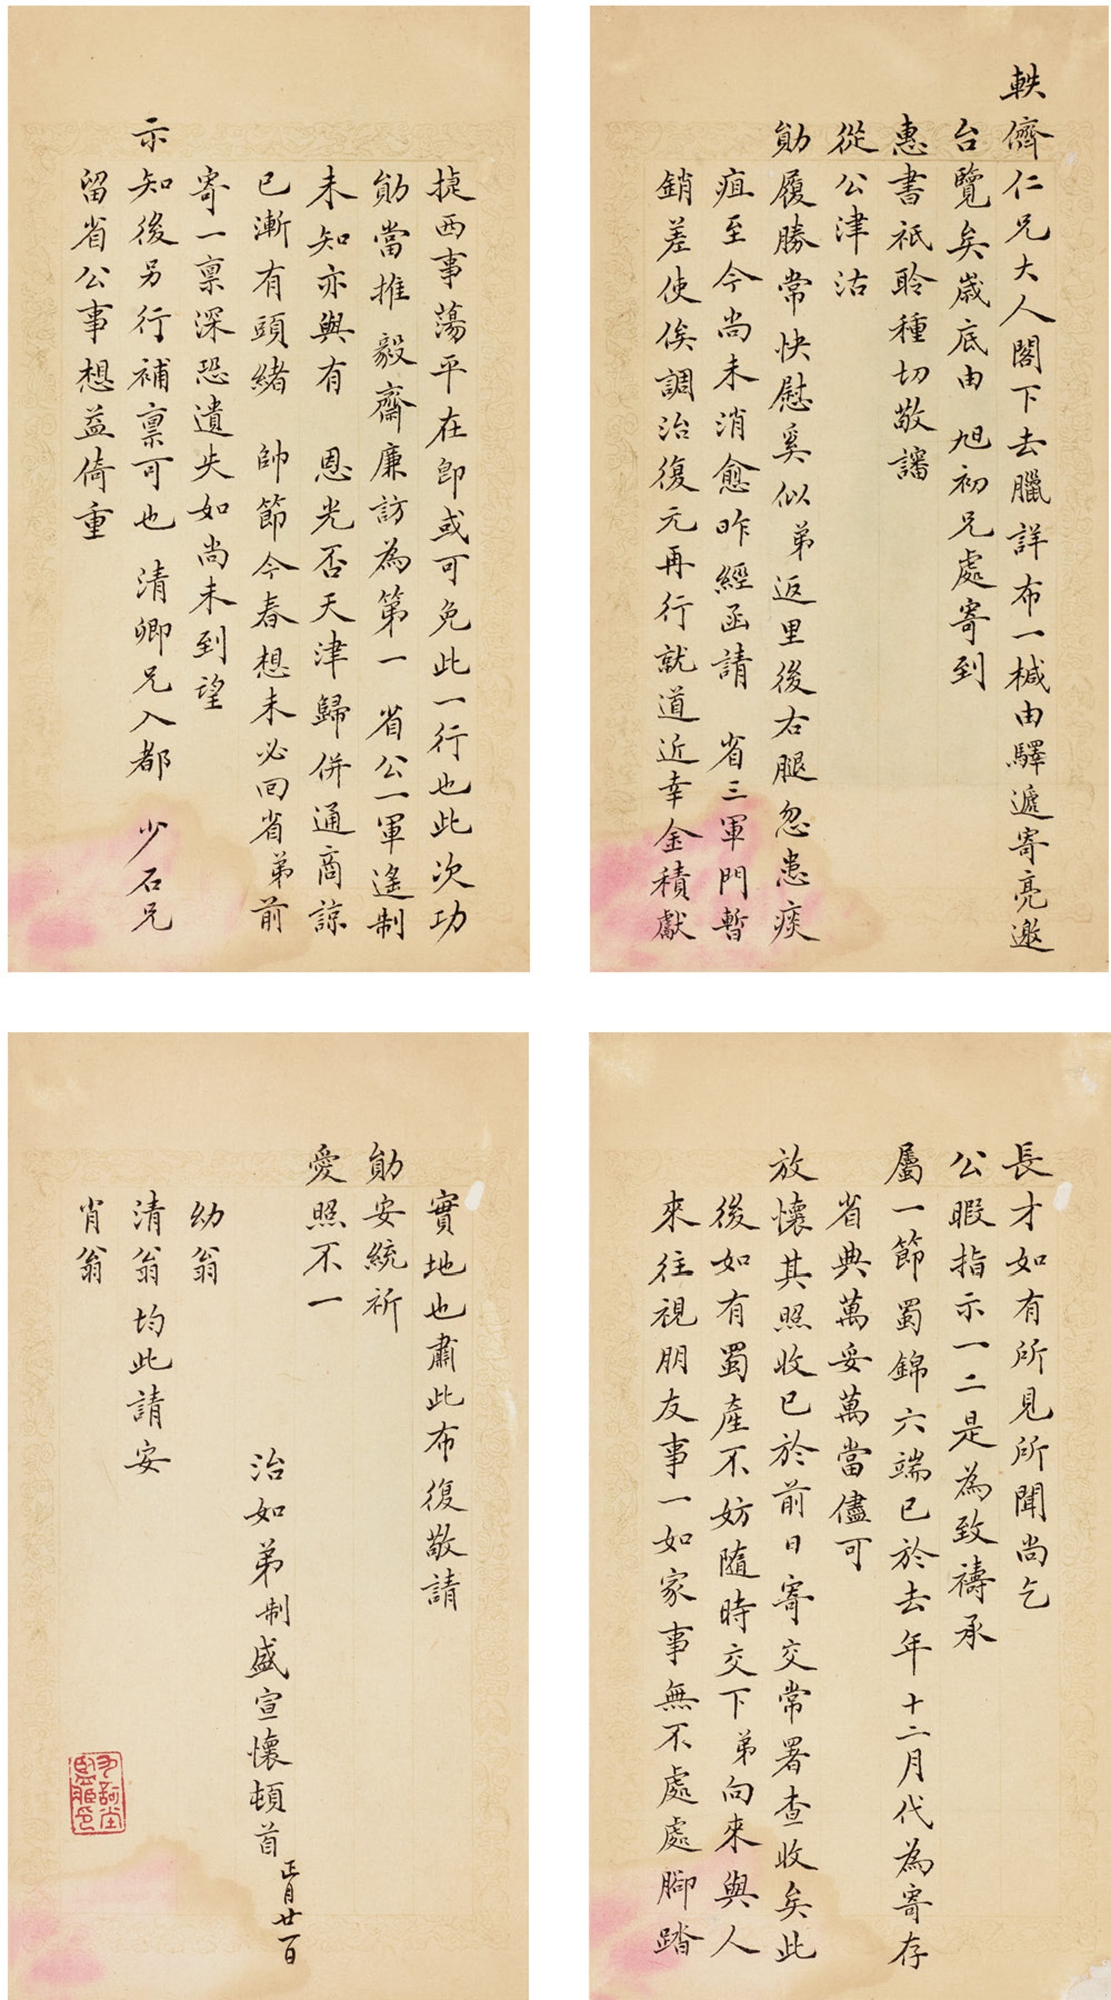 軼儕仁兄大人閣下去臘詳布一椷由驛遞寄亮邀
台覽矣歲底由旭初兄處寄到
惠書祇聆種切敬讅
從公津沽
勛履勝常快慰奚似弟返里後右腿忽患痰
疽至今尚未消愈昨經函請省三軍門暫
銷差使俟調治復元再行就道近幸金積獻
捷西事蕩平在即或可免此一行也此次功
勛當推毅齋廉訪為第一省公一軍遙制
未知亦與有恩光否天津歸併通商諒
已漸有頭緒帥節今春想未必回省弟前
寄一稟深恐遺失如尚未到望
示知後另行補稟可也清卿兄入都少石兄
留省公事想益倚重
長才如有所見所聞尚乞
公暇指示一二是為致禱承
屬一節蜀錦六端已於去年十二月代為寄存
省典萬妥萬當儘可
放懷其照收已於前日寄交常署查收矣此
後如有蜀產不妨隨時交下弟向來與人
來往視朋友事一如家事無不處處腳踏
實地也肅此布復敬請
勛安統祈
愛照不一
治如弟制盛宣懷頓首正月廿一日
幼翁
清翁均此請安
肖翁